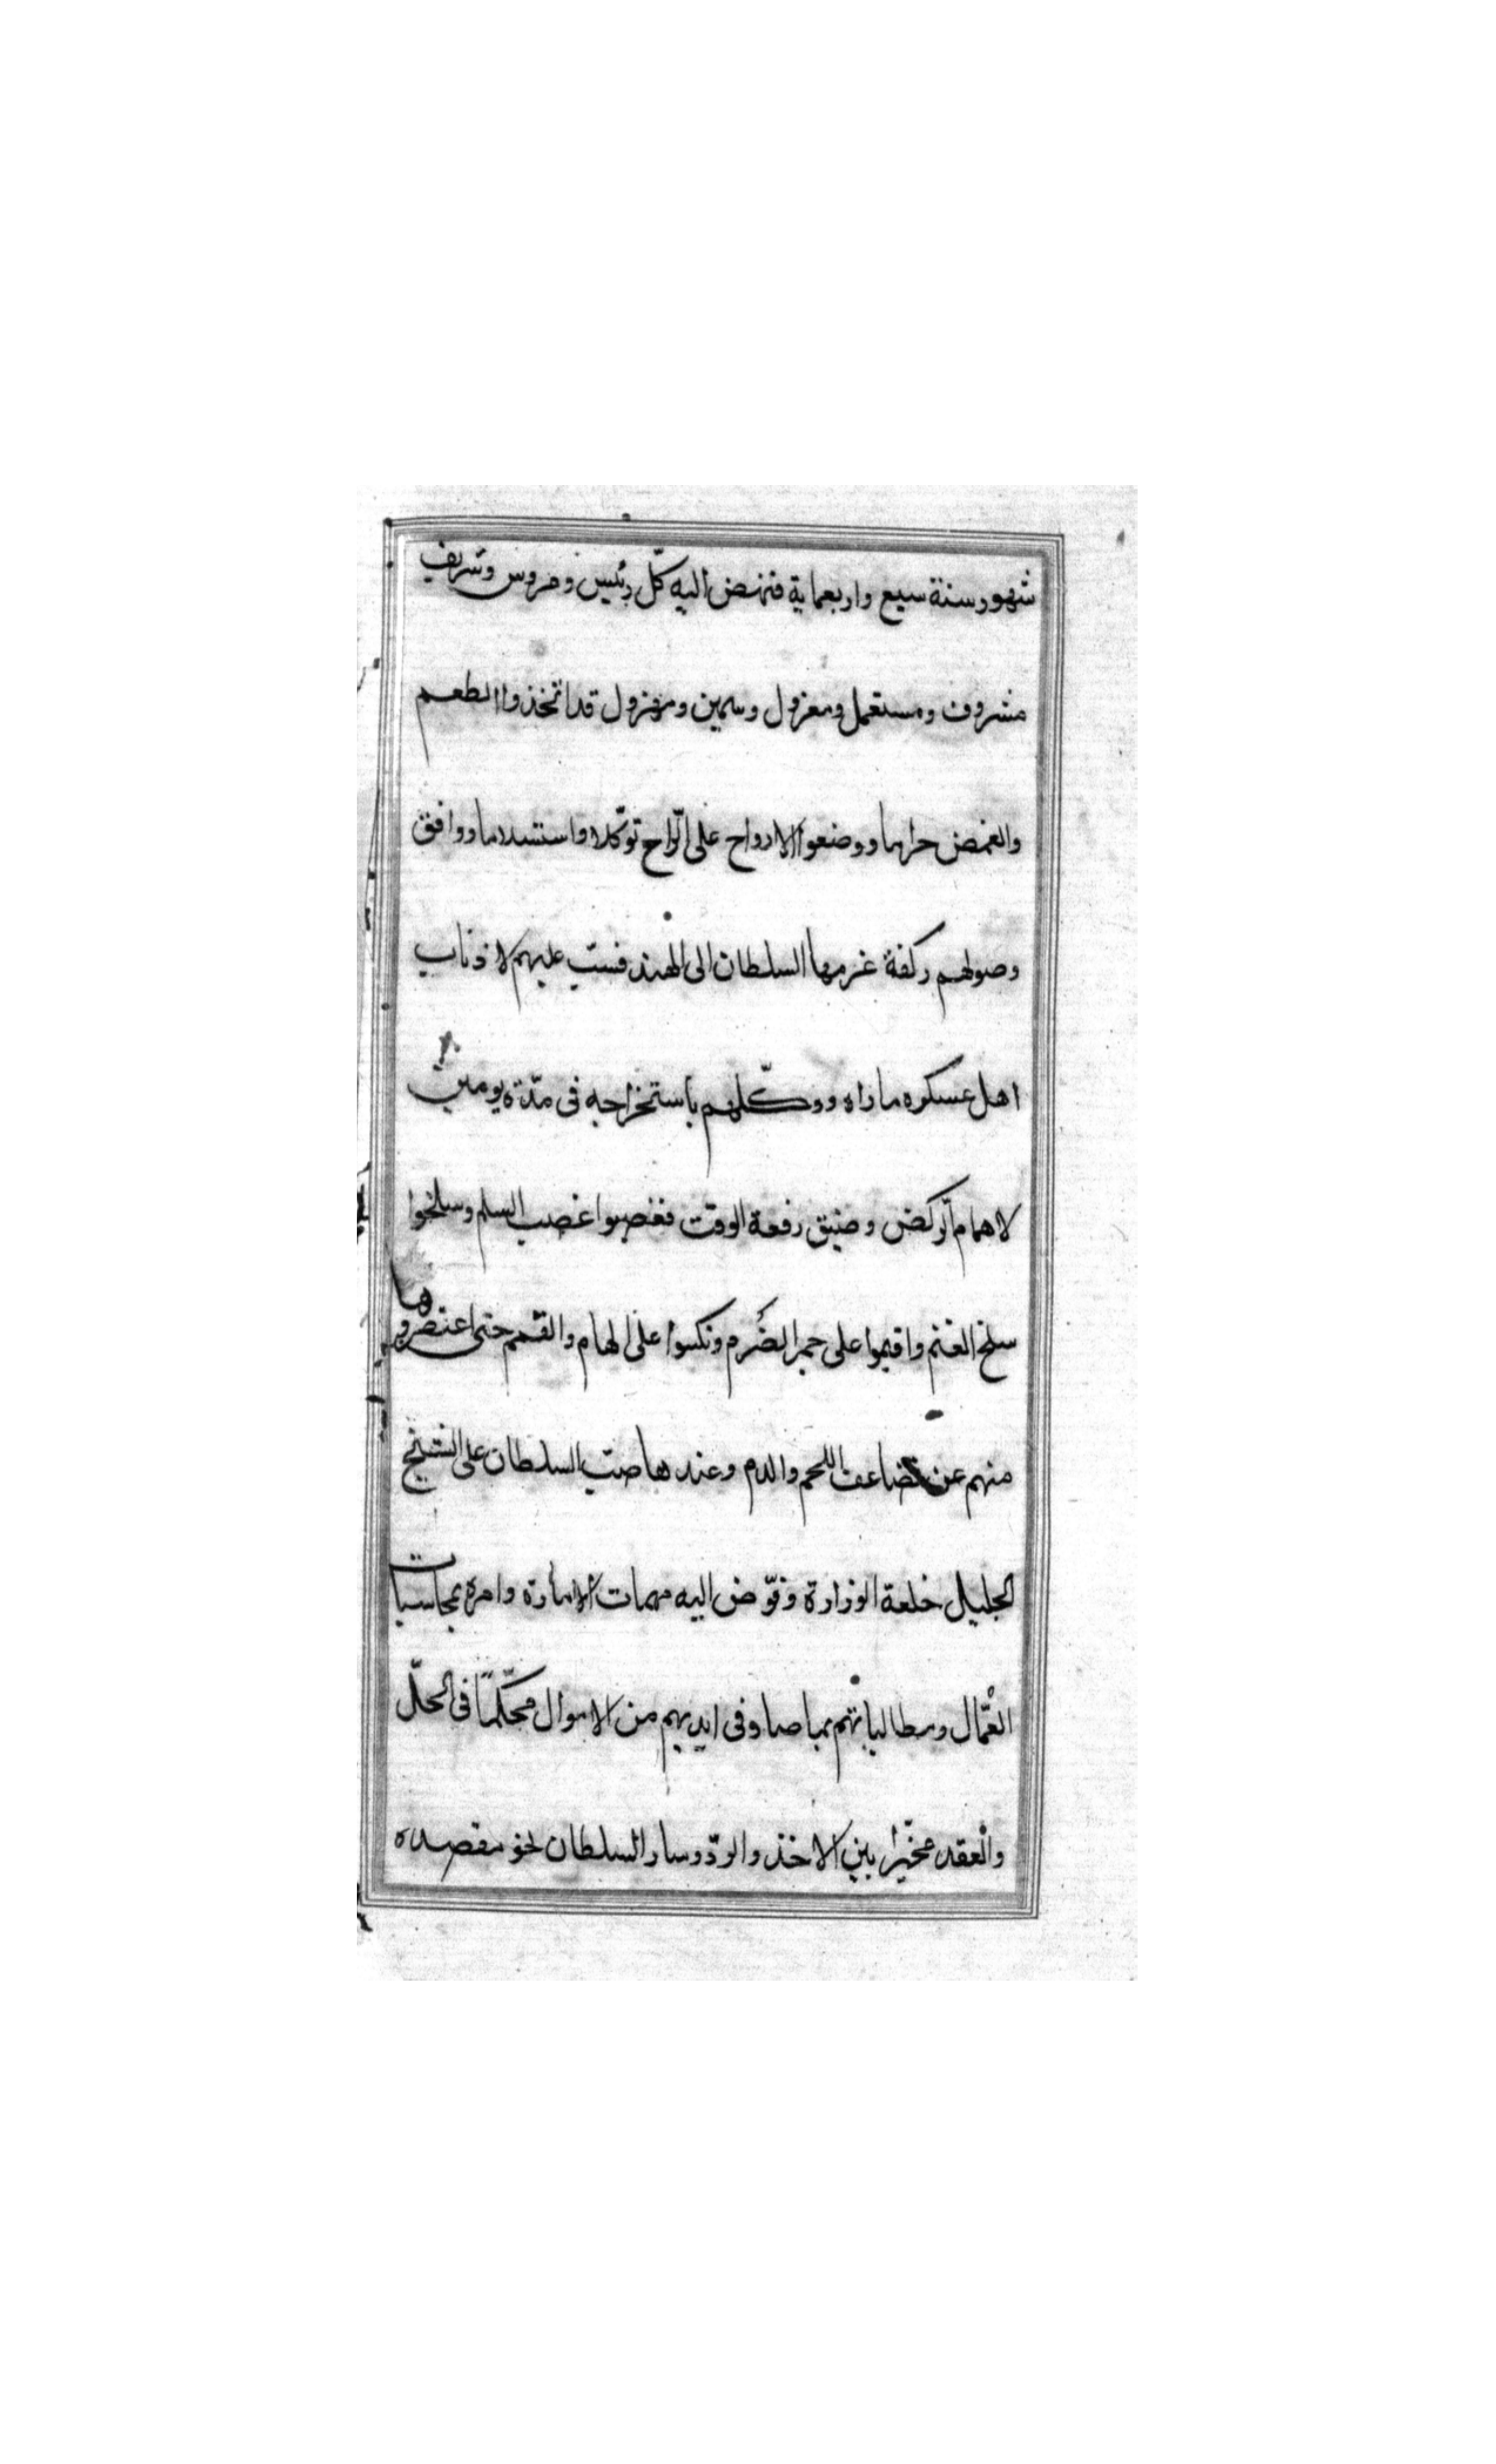 شهور سنة سبع واربعماية فنهض اليه كلّ رئيس ومروس وشريف
مشروف ومستعمل ومعزول وسمين ومهزول قد اتخذوا الطعم
والغمض حراما ووضعوا الارواح على الرّاح توكّلا واستسلاما ووافق
وصولهم ركضة عزمها السلطان الى الهند فسبّ عليهم لاذناب
اهل عسكره ماراه ووكّلهم باستخراجه فى مدّة يومين
لاهمام الركض وضيق رقعة الوقت فغصبوا غصب السلم وسلخوا
سلخ الغنم واقيموا على جمر الضّرم ونكسوا على الهام والقمم حتى اعتصروها
منهم عن تضاعف اللحم والدم وعندها صبّ السلطان على الشيخ
الجليل خلعة الوزارة وفوّض اليه مهمات الامارة وامره بمحاسبات
العمّال ومطالباتهم بما صار فى ايديهم من الاموال محكّمًا فى الحلّ
والعقد مخيّرا بين الاخذ والردّ وسار السلطان نحو مقصده